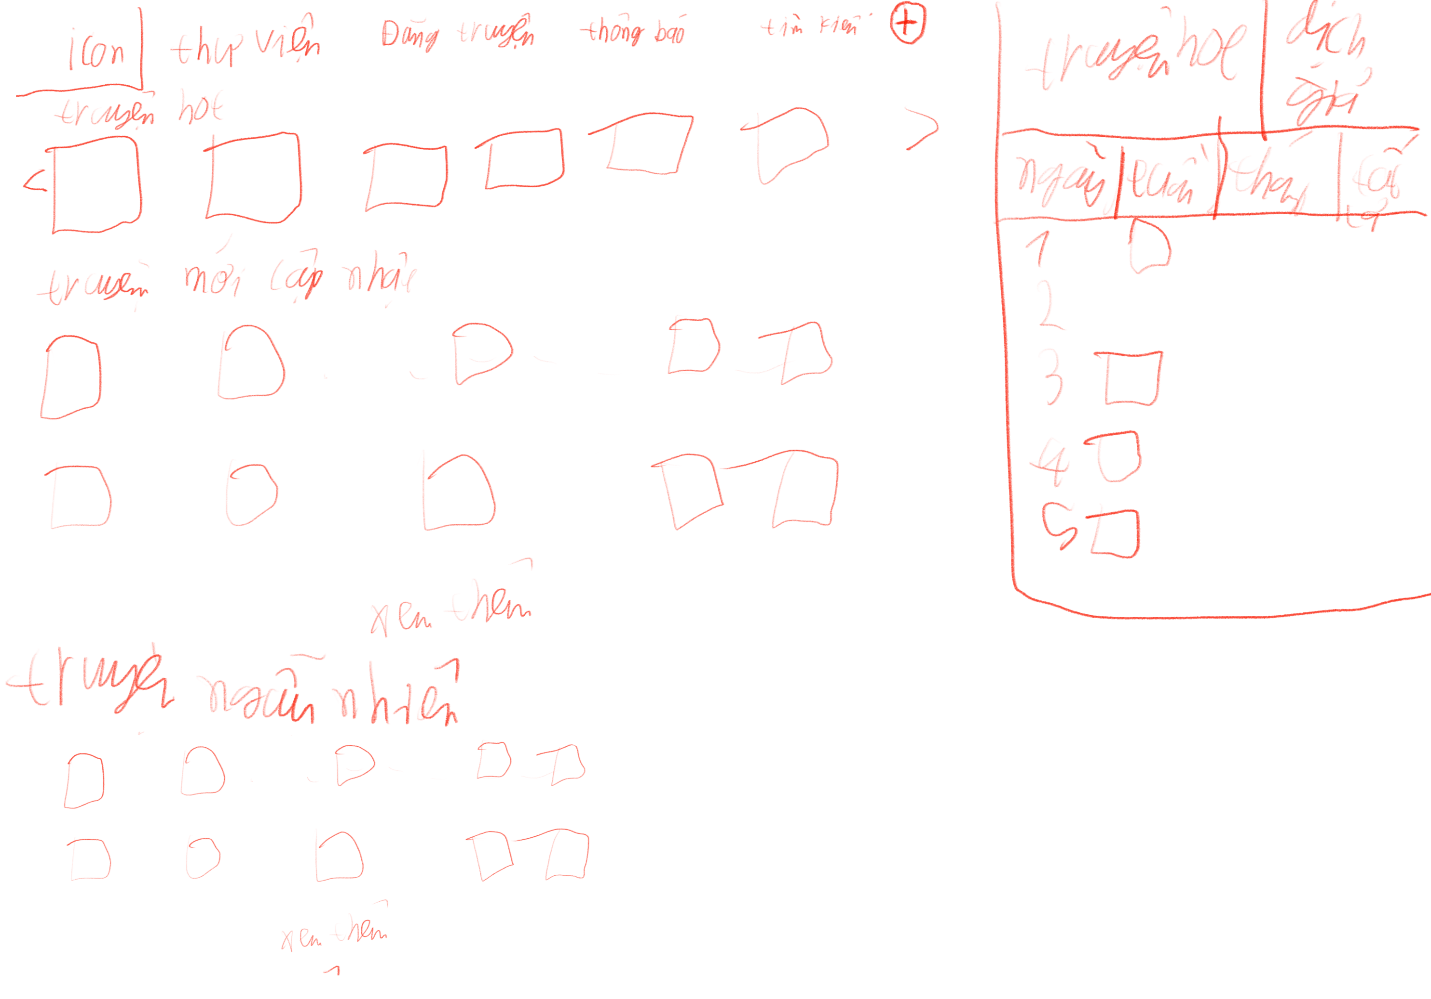 icon thư viện Đăng truyện thông báo tìm kiếm +
truyện hot >
<
truyện mới cập nhật
xem thêm
truyện ngẫu nhiên
xem thêm
truyện hot dịch giả
ngày tuần tháng tất cả
1
2
3
4
5